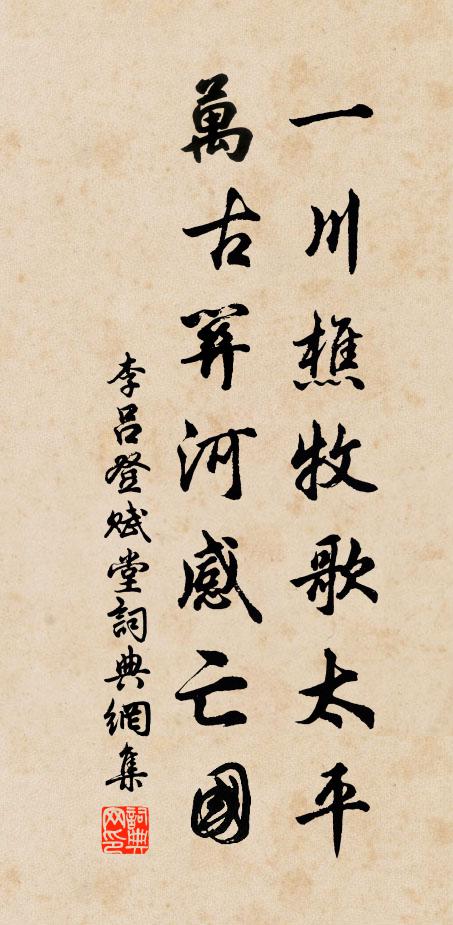 一川樵牧歌太平
萬古関河感亡國
李呂登賦堂詞典網集
詞典网印